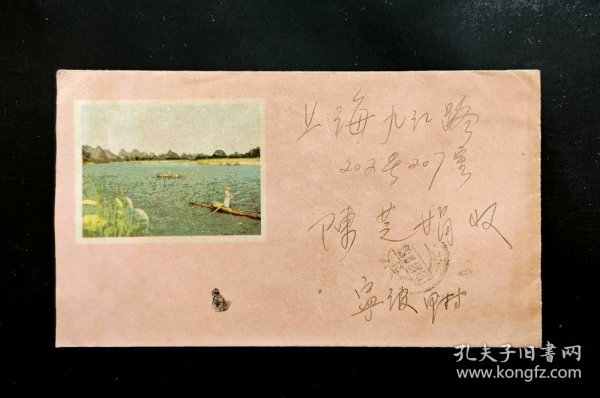 上海九江路
202号207室
陳芝娟收
寧波
孔夫子旧書网
www.kongfz.com